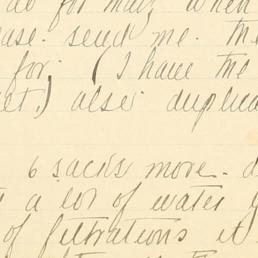 do for may, when
ase. send me. the
for, (I have the
et.) also duplica
6 sacks more. d
a lot of water
of filtrations it